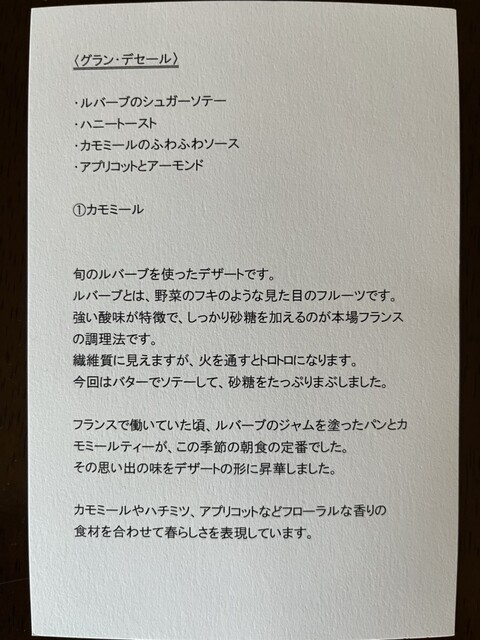 〈グラン・デセール〉
・ルバーブのシュガーソテー
・ハニートースト
・カモミールのふわふわソース
・アプリコットとアーモンド
①カモミール
旬のルバーブを使ったデザートです。
ルバーブとは、野菜のフキのような見た目のフルーツです。
強い酸味が特徴で、しっかり砂糖を加えるのが本場フランス
の調理法です。
繊維質に見えますが、火を通すとトロトロになります。
今回はバターでソテーして、砂糖をたっぷりまぶしました。
フランスで働いていた頃、ルバーブのジャムを塗ったパンとカ
モミールティーが、この季節の朝食の定番でした。
その思い出の味をデザートの形に昇華しました。
カモミールやハチミツ、アプリコットなどフローラルな香りの
食材を合わせて春らしさを表現しています。